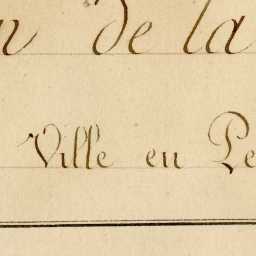 n de la
Ville en Pe